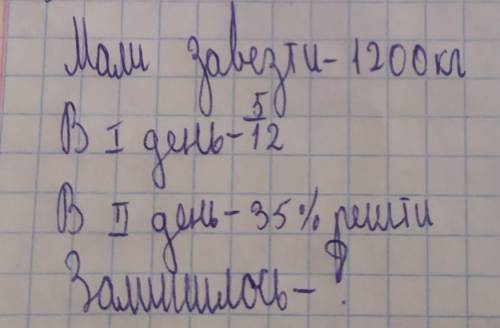 Мали завезти - 1200 кг
В I день - 5/12
В II день - 35% решти
Залишилось - ?